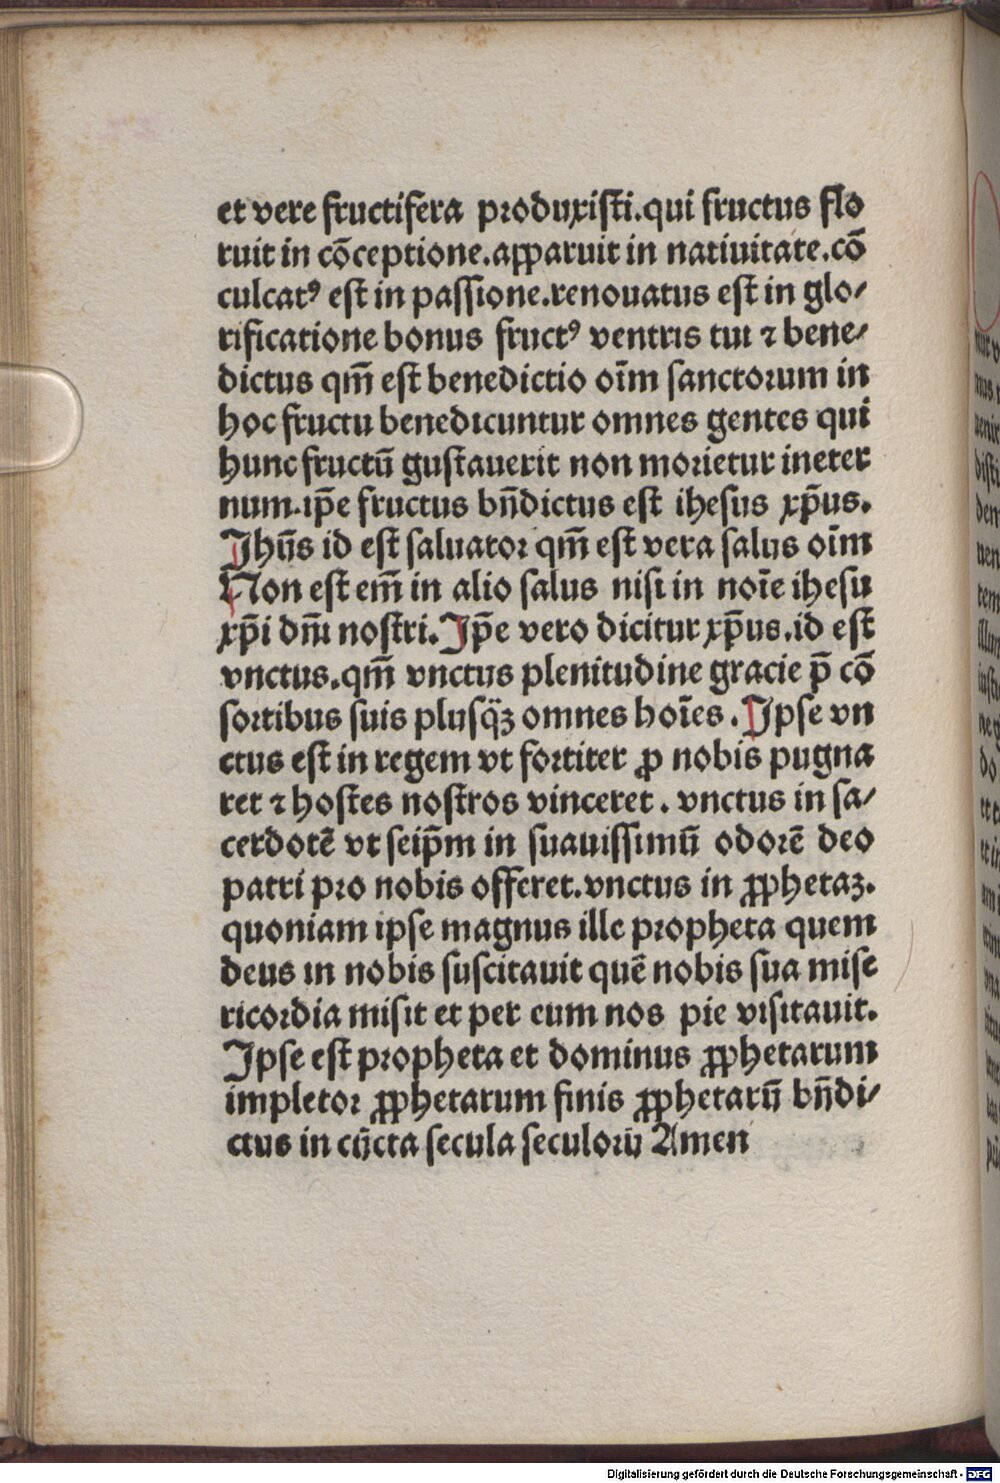 et vere fructifera produxisti.qui fructus flo
ruit in cōceptione.apparuit in natiuitate.cō
culcatꝰ est in passione.renouatus est in glo⸗
rificatione bonus fructꝰ ventris tui ⁊ bene⸗
dictus qm̄ est benedictio oīm sanctorum in
hoc fructu benedicuntur omnes gentes qui
hunc fructū gustauerit non morietur ineter
num.ip̄e fructus bn̄dictus est ihesus xp̄us.
Jhūs id est saluator qm̄ est vera salus oīm
Non est em̄ in alio salus nisi in noīe ihesu
xp̄i dm̄i nostri.Jp̄e vero dicitur xp̄us.id est
vnctus.qm̄ vnctus plenitudine gracie p̄ cō
sortibus suis plusq̈ꝫ omnes hoīes.Jpse vn
ctus est in regem vt fortiter ꝓ nobis pugna
ret ⁊ hostes nostros vinceret.vnctus in sa⸗
cerdotē vt seip̄m in suauissimū odorē deo
patri pro nobis offeret.vnctus in ꝓphetaꝫ.
quoniam ipse magnus ille propheta quem
deus in nobis suscitauit quē nobis sua mise
ricordia misit et per eum nos pie visitauit.
Jpse est propheta et dominus ꝓphetarum
impletor ꝓphetarum finis ꝓphetarū bn̄di⸗
ctus in cūcta secula seculorū Amen
Digitalisierung gefördert durch die Deutsche Forschungsgemeinschaft - DFG